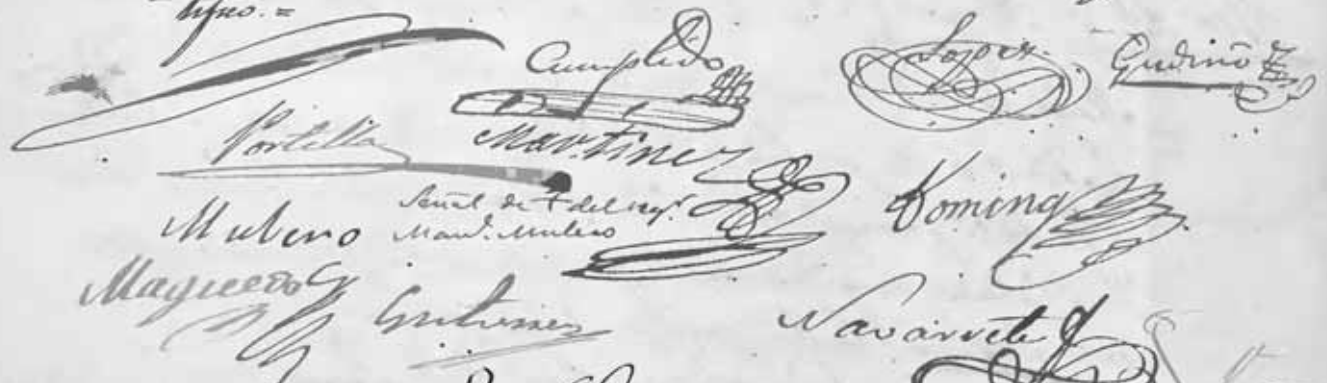 Cumplido
Lopez
Gudiño
Portilla
Martinez
Mulero
Señal de + del regr.
Man.l Mulero
Doming
Maqueda
Gutierrez
Navarrete